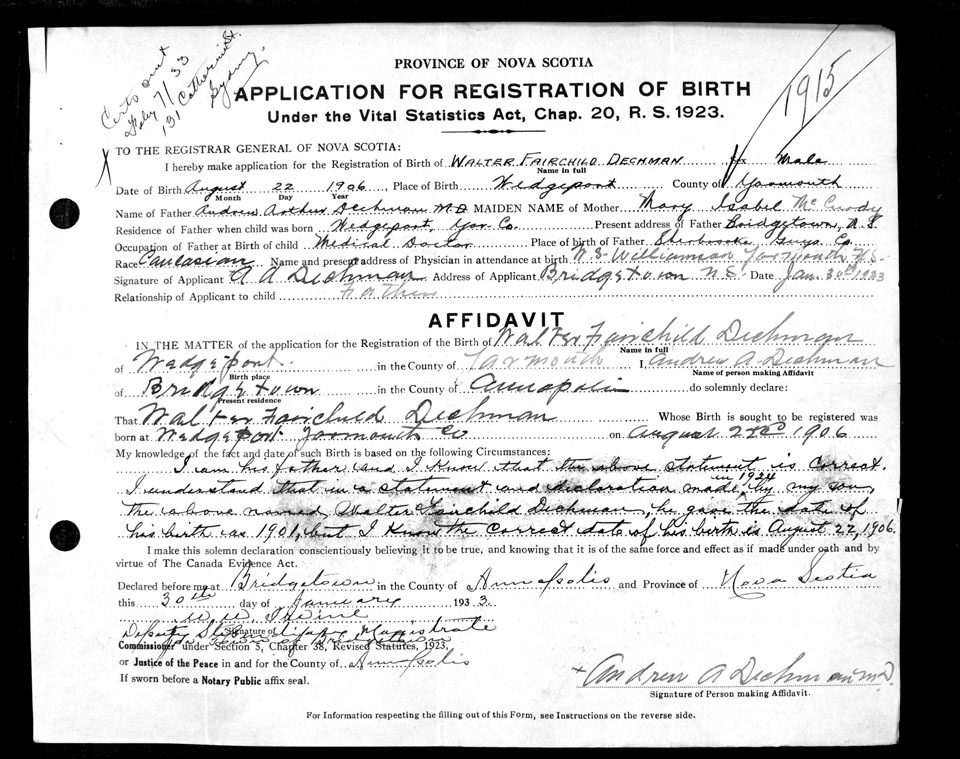 Certs sent
Feby 7/33
131 Catherine St.
Sydney.
1915
PROVINCE OF NOVA SCOTIA
APPLICATION FOR REGISTRATION OF BIRTH
Under the Vital Statistics Act, Chap. 20, R. S. 1923.
X TO THE REGISTRAR GENERAL OF NOVA SCOTIA:
I hereby make application for the Registration of Birth of WALTER FAIRCHILD DECHMAN Male
Name in full
Date of Birth August 22 1906, Place of Birth Wedgeport County of Yarmouth
Month Day Year
Name of Father Andrew Arthur Dechman M.D. MAIDEN NAME of Mother Mary Isabel McCurdy
Residence of Father when child was born Wedgeport, Yar. Co. Present address of Father Bridgetown, N.S.
Occupation of Father at Birth of child Medical Doctor Place of birth of Father Sherbrooke, Guys. Co.
Race Caucasian Name and present address of Physician in attendance at birth Williamson Yarmouth N.S.
Signature of Applicant A A Dechman Address of Applicant Bridgetown N.S. Date Jan. 30th 1933
Relationship of Applicant to child Father
AFFIDAVIT
IN THE MATTER of the application for the Registration of the Birth of Walter Fairchild Dechman
Name in full
of Wedgeport. in the County of Yarmouth I, Andrew A. Dechman
Birth place Name of person making Affidavit
of Bridgetown in the County of Annapolis do solemnly declare:
Present residence
That Walter Fairchild Dechman Whose Birth is sought to be registered was
born at Wedgeport Yarmouth Co on August 22nd 1906
My knowledge of the fact and date of such Birth is based on the following Circumstances:
I am his father and I know that the above statement is correct.
I understand that in a statement and declaration made in 1924 by my son,
the above named Walter Fairchild Dechman, he gave the date of
his birth as 1901, but I know the correct date of his birth is August 22, 1906.
I make this solemn declaration conscientiously believing it to be true, and knowing that it is of the same force and effect as if made under oath and by
virtue of The Canada Evidence Act.
Declared before me at Bridgetown in the County of Annapolis and Province of Nova Scotia
this 30th day of January 1933.
Irvine
Signature of
Deputy Stipendiary Magistrate
Commissioner under Section 5, Chapter 38, Revised Statutes, 1923,
or Justice of the Peace in and for the County of Annapolis
If sworn before a Notary Public affix seal.
+ Andrew A Dechman M.D.
Signature of Person making Affidavit.
For Information respecting the filling out of this Form, see Instructions on the reverse side.